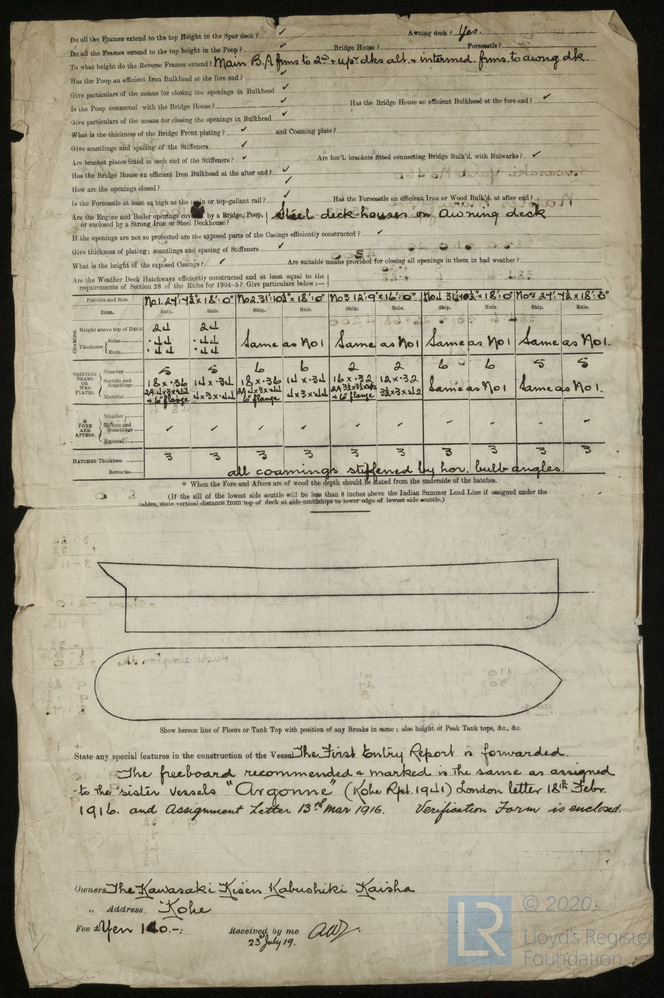 Do all the Frames extend to the top Height in the Spar deck? ✓ Awning deck? Yes.
Do all the Frames extend to the top height in the Poop? ✓ Bridge House? Forecastle?
To what height do the Reverse Frames extend? Main B.A frms to 2nd & upr dks alt. & intermed. frms. to awng dk.
Has the Poop an efficient Iron Bulkhead at the fore end? ✓
Give particulars of the means for closing the openings in Bulkhead ✓
Is the Poop connected with the Bridge House? ✓ Has the Bridge House an efficient Bulkhead at the fore end? ✓
Give particulars of the means for closing the openings in Bulkhead ✓
What is the thickness of the Bridge Front plating? ✓ and Coaming plate?
Give scantlings and spacing of the Stiffeners ✓
Are bracket plates fitted at each end of the Stiffeners? ✓ Are hor'l. brackets fitted connecting Bridge Bulk'd. with Bulwarks? ✓
Has the Bridge House an efficient Iron Bulkhead at the after end? ✓
How are the openings closed? ✓
Is the Forecastle at least as high as the or top-gallant rail? ✓ Has the Forecastle an efficient Iron or Wood Bulk'd. at after end?
Are the Engine and Boiler openings by a Bridge, Poop, Steel deck houses on Awning deck
or enclosed by a Strong Iron or Steel Deckhouse?
If the openings are not so protected are the exposed parts of the Casings efficiently constructed? ✓
Give thickness of plating; scantlings and spacing of Stiffeners ✓
What is the height of the exposed Casings? ✓ Are suitable means provided for closing all openings in them in bad weather?
Are the Weather Deck Hatchways efficiently constructed and at least equal to the
requirements of Section 28 of the Rules for 1904-5? Give particulars below:—
Position and Size. No 1. 24'. 7½" × 18'. 0" No 2. 31'. 10½" × 18'. 0" No 3 12'. 9" × 16'. 0" No 4 31'. 10½" × 18'. 0" 24'. 7½ × 18'. 0"
Item. Ship. Rule. Ship. Rule. Ship. Rule. Ship. Rule. Ship. Rule.
COAMING Height above top of DECK 24 24
Thickness Sides .44 .44 Same as No 1 Same as No 1 Same as No 1 Same as No 1.
Ends .44 .44
SHIFTING BEAMS OR WEB PLATES. Number 5 5 6 6 2 2 6 6 5 5
Section and Scantlings 18 × .36 14 × .34 18 × .36 14 × .34 16 × .32 12 × .32 Same as No 1 Same as No 1.
Material 4 × 3 × .44 4 × 3 × .44
& 6" flange & 6" flange & 6" flange
FORE AND AFTERS. Number
Section and Scantlings ✓ ✓ ✓ ✓ ✓ ✓ ✓ ✓ ✓ ✓
Material
HATCHES Thickness 3 3 3 3 3 3 3 3 3 3
Remarks all coamings stiffened by hor. bulb angles.
* When the Fore and Afters are of wood the depth should be stated from the underside of the hatches.
(If the sill of the lowest side scuttle will be less than 6 inches above the Indian Summer Load Line if assigned under the
tables, state vertical distance from top of deck at side amidships to lower edge of lowest side scuttle.)
Show hereon line of Floors or Tank Top with position of any Breaks in same; also height of Peak Tank tops, &c., &c.
State any special features in the construction of the Vessel The First Entry Report is forwarded.
The freeboard recommended & marked is the same as assigned
to the sister vessels "Argonne" (Kobe Rpt. 1941) London letter 18th Febr.
1916. and Assignment Letter 13th Mar 1916. Verification Form is enclosed.
Owners The Kawasaki Kisen Kabushiki Kaisha
„ Address Kobe
Fee £ Yen 140.-: Received by me
23rd July 19.
© 2020
LR
Lloyd's Register
Foundation